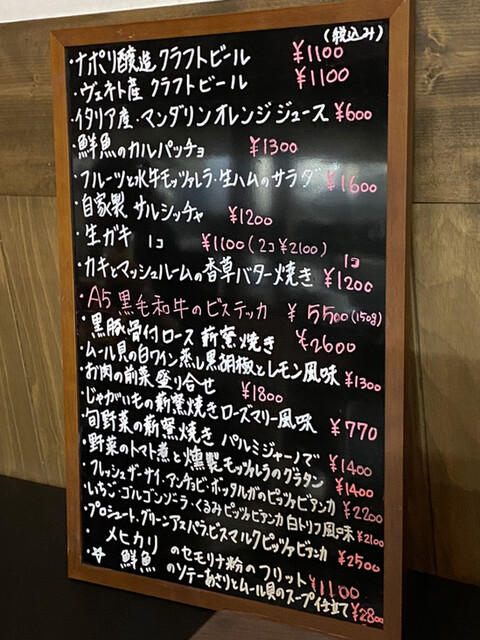 (税込み)
・ナポリ醸造クラフトビール ¥1100
・ヴェネト産 クラフトビール ¥1100
・イタリア産・マンダリンオレンジジュース ¥600
・鮮魚のカルパッチョ ¥1300
・フルーツと水牛モッツァレラ・生ハムのサラダ ¥1600
・自家製 サルシッチャ ¥1200
・生ガキ 1コ ¥1100(2コ¥2100)
・カキとマッシュルームの香草バター焼き 1コ ¥1200
・A5黒毛和牛のビステッカ ¥5500(150g)
・黒豚骨付ロース 薪窯焼き ¥2600
・ムール貝の白ワイン蒸し黒胡椒とレモン風味 ¥1300
・お肉の前菜盛り合せ ¥1800
・じゃがいもの薪窯焼きローズマリー風味 ¥770
・旬野菜の薪窯焼き パルミジャーノで ¥1400
・野菜のトマト煮と燻製モッツァレラのグラタン ¥1400
・フレッシュザーサイ・アンチョビ・ボッタルガのピッツァビアンカ ¥2200
・いちご・ゴルゴンゾーラ・くるみピッツァビアンカ 白トリフ風味 ¥2100
・プロシュート・グリーンアスパラ・ビスマルクピッツァビアンカ ¥2500
・メヒカリのセモリナ粉のフリット ¥1100
☆ 鮮魚のソテーあさりとムール貝のスープ仕立て ¥2800